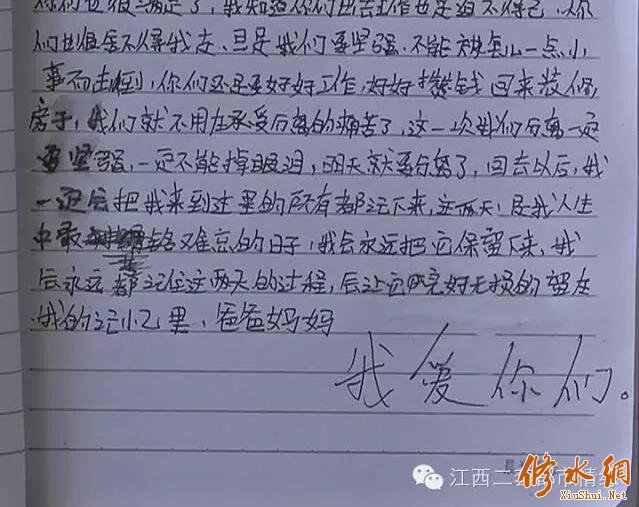 你们也很满足了，我知道你们出去工作也是迫不得已，你
们也很舍不得我走、旦是我们要坚强、不能被这么一点小
事而击倒，你们还是要好好工作，好好攒钱回来装修
房子，我们就不用在承受分离的痛苦了，这一次我们分离一定
要坚强，一定不能掉眼泪，明天就要分离了，回去以后，我
一定会把我来到这里的所有都记下来，这两天，是我人生
中最难忘的日子，我会永远把它保留下来，我
会永远都记住这两天的过程，会让它完好无损的留在
我的记忆里、爸爸妈妈
我爱你们。
江西二套都市情缘
修水網
XiuShui.Net